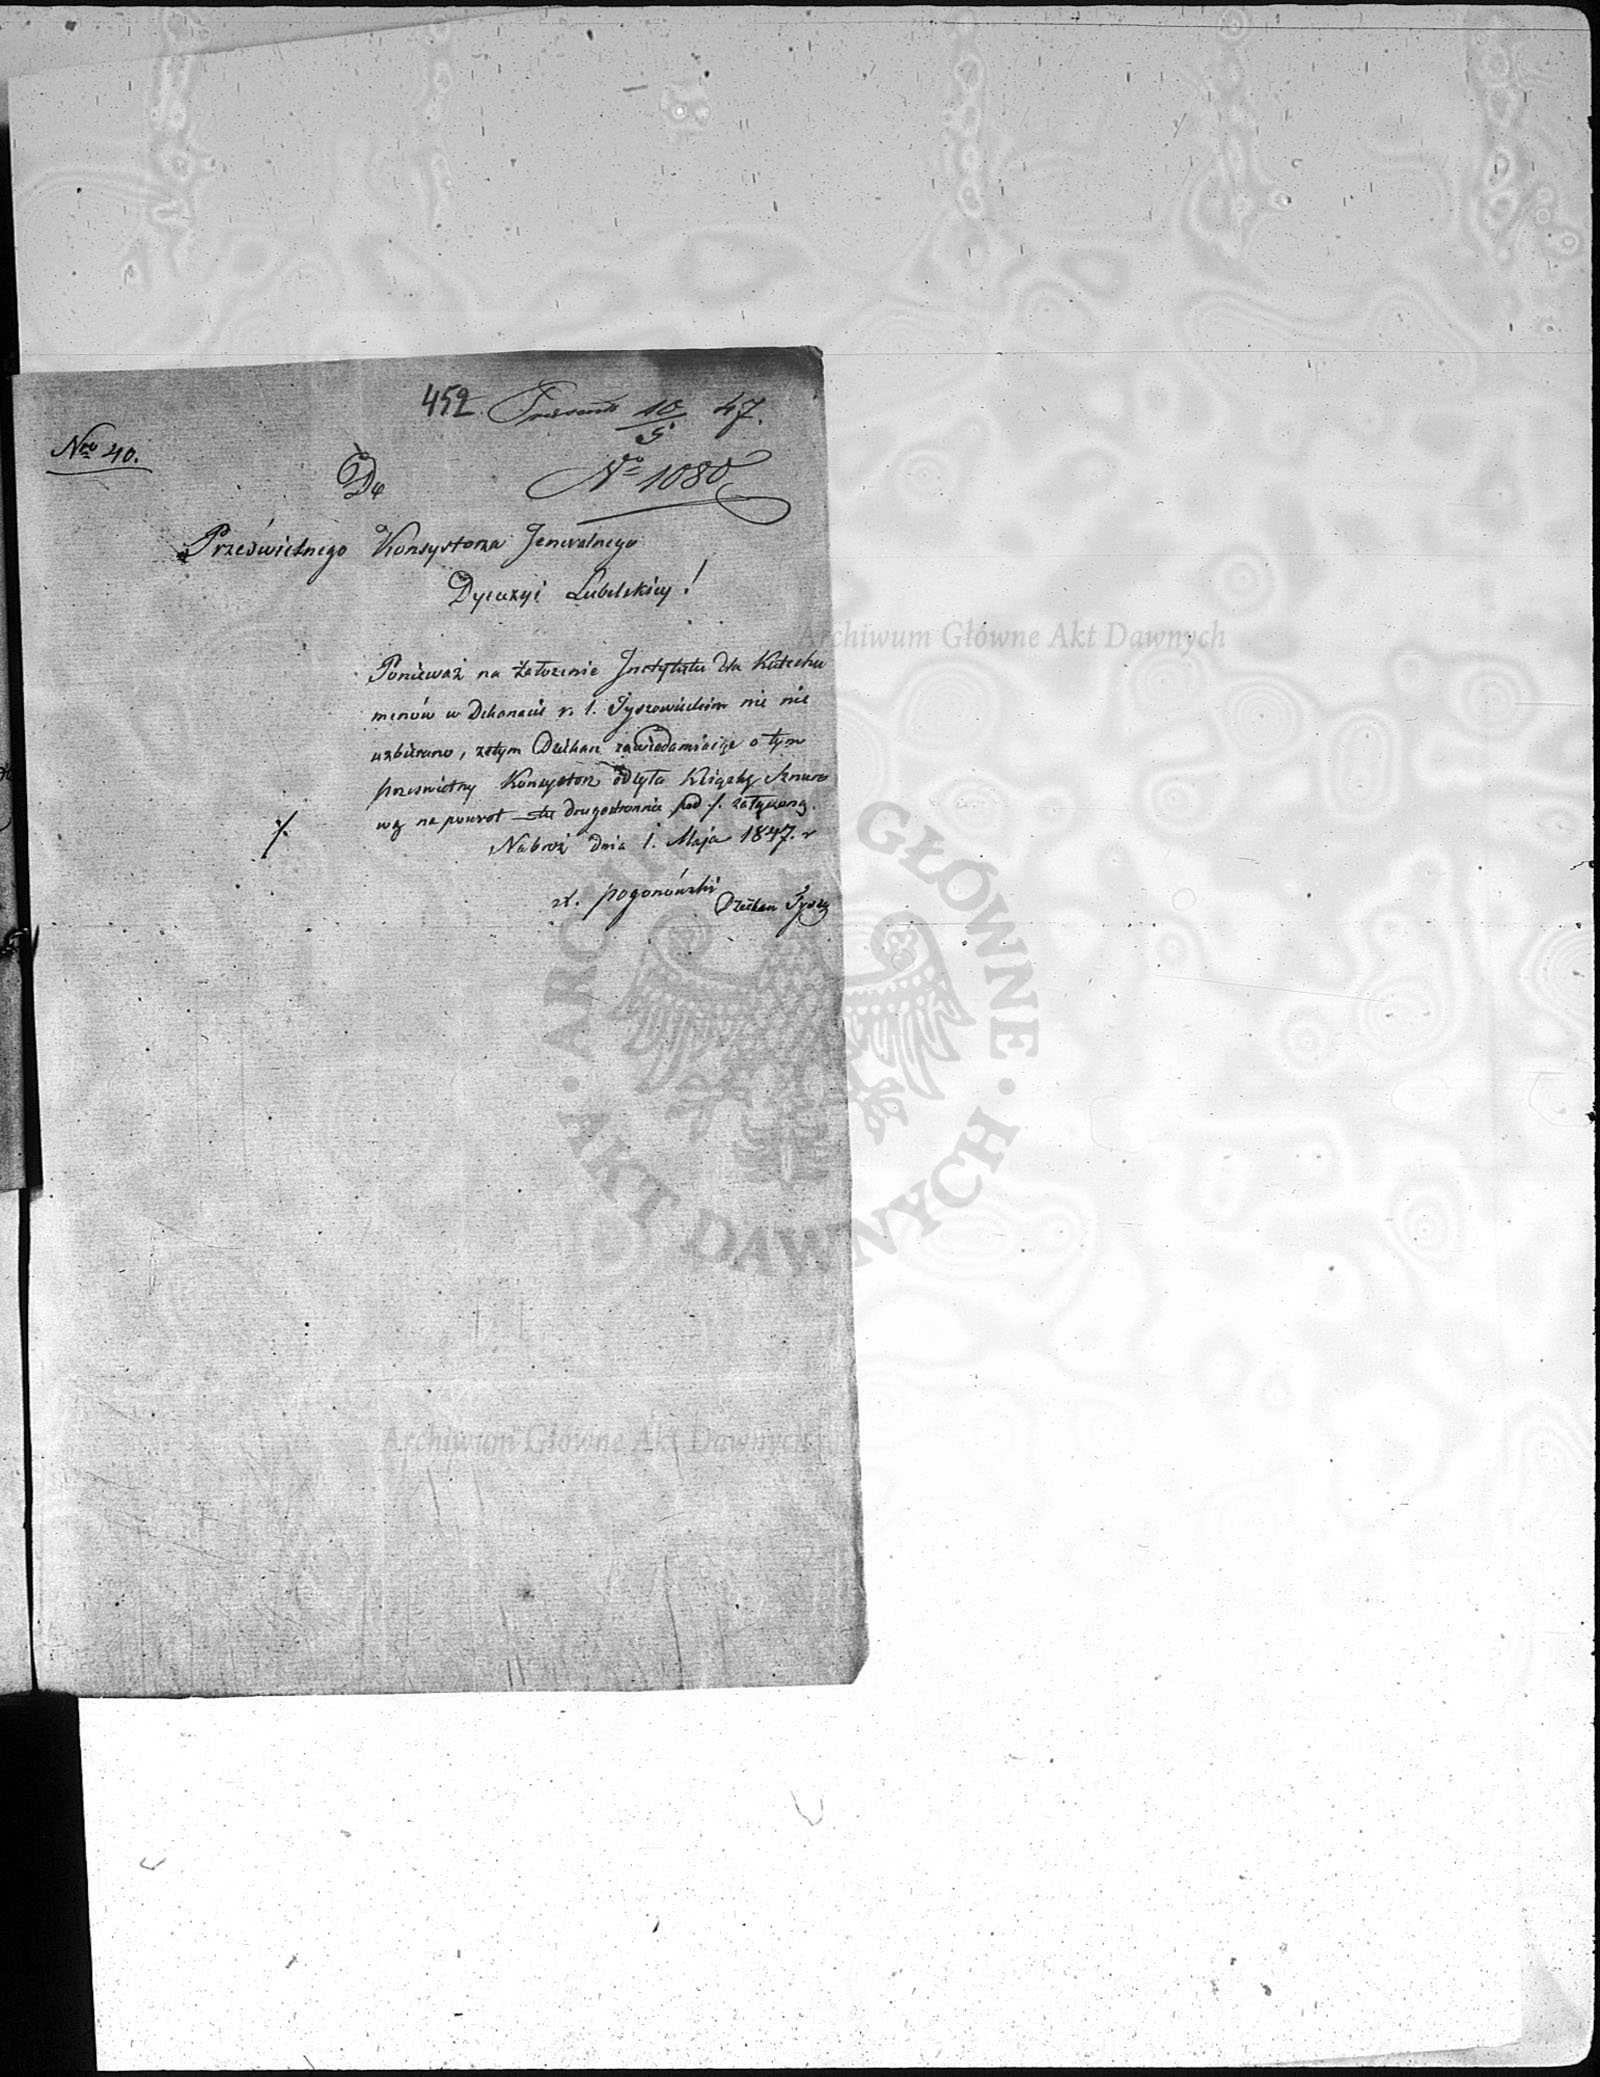 452 Praesent 10/5 47.
Nro 40.
Do
No 1080
Prześwietnego Konsystorza Jeneralnego
Dyecezyi Lubelskiey!
Ponieważ na założenie Instytutu dla Katechu
menów w Dekanacie r. l. Tyszowieckim nic nie
uzbierano, zatym Dziekan zawiadamiaiąc o tym
prześwietny Konsystorz odsyła Książkę Sznuro
wą na powrot drugostronnie pod ·/. załączoną.
·/.
Nabroż dnia 1. Maja 1847. r
X. Pogonowski
Dziekan Tysz
Archiwum Główne Akt Dawnych
ARCHIWUM GŁÓWNE · AKT DAWNYCH ·
Archiwum Główne Akt Dawnych